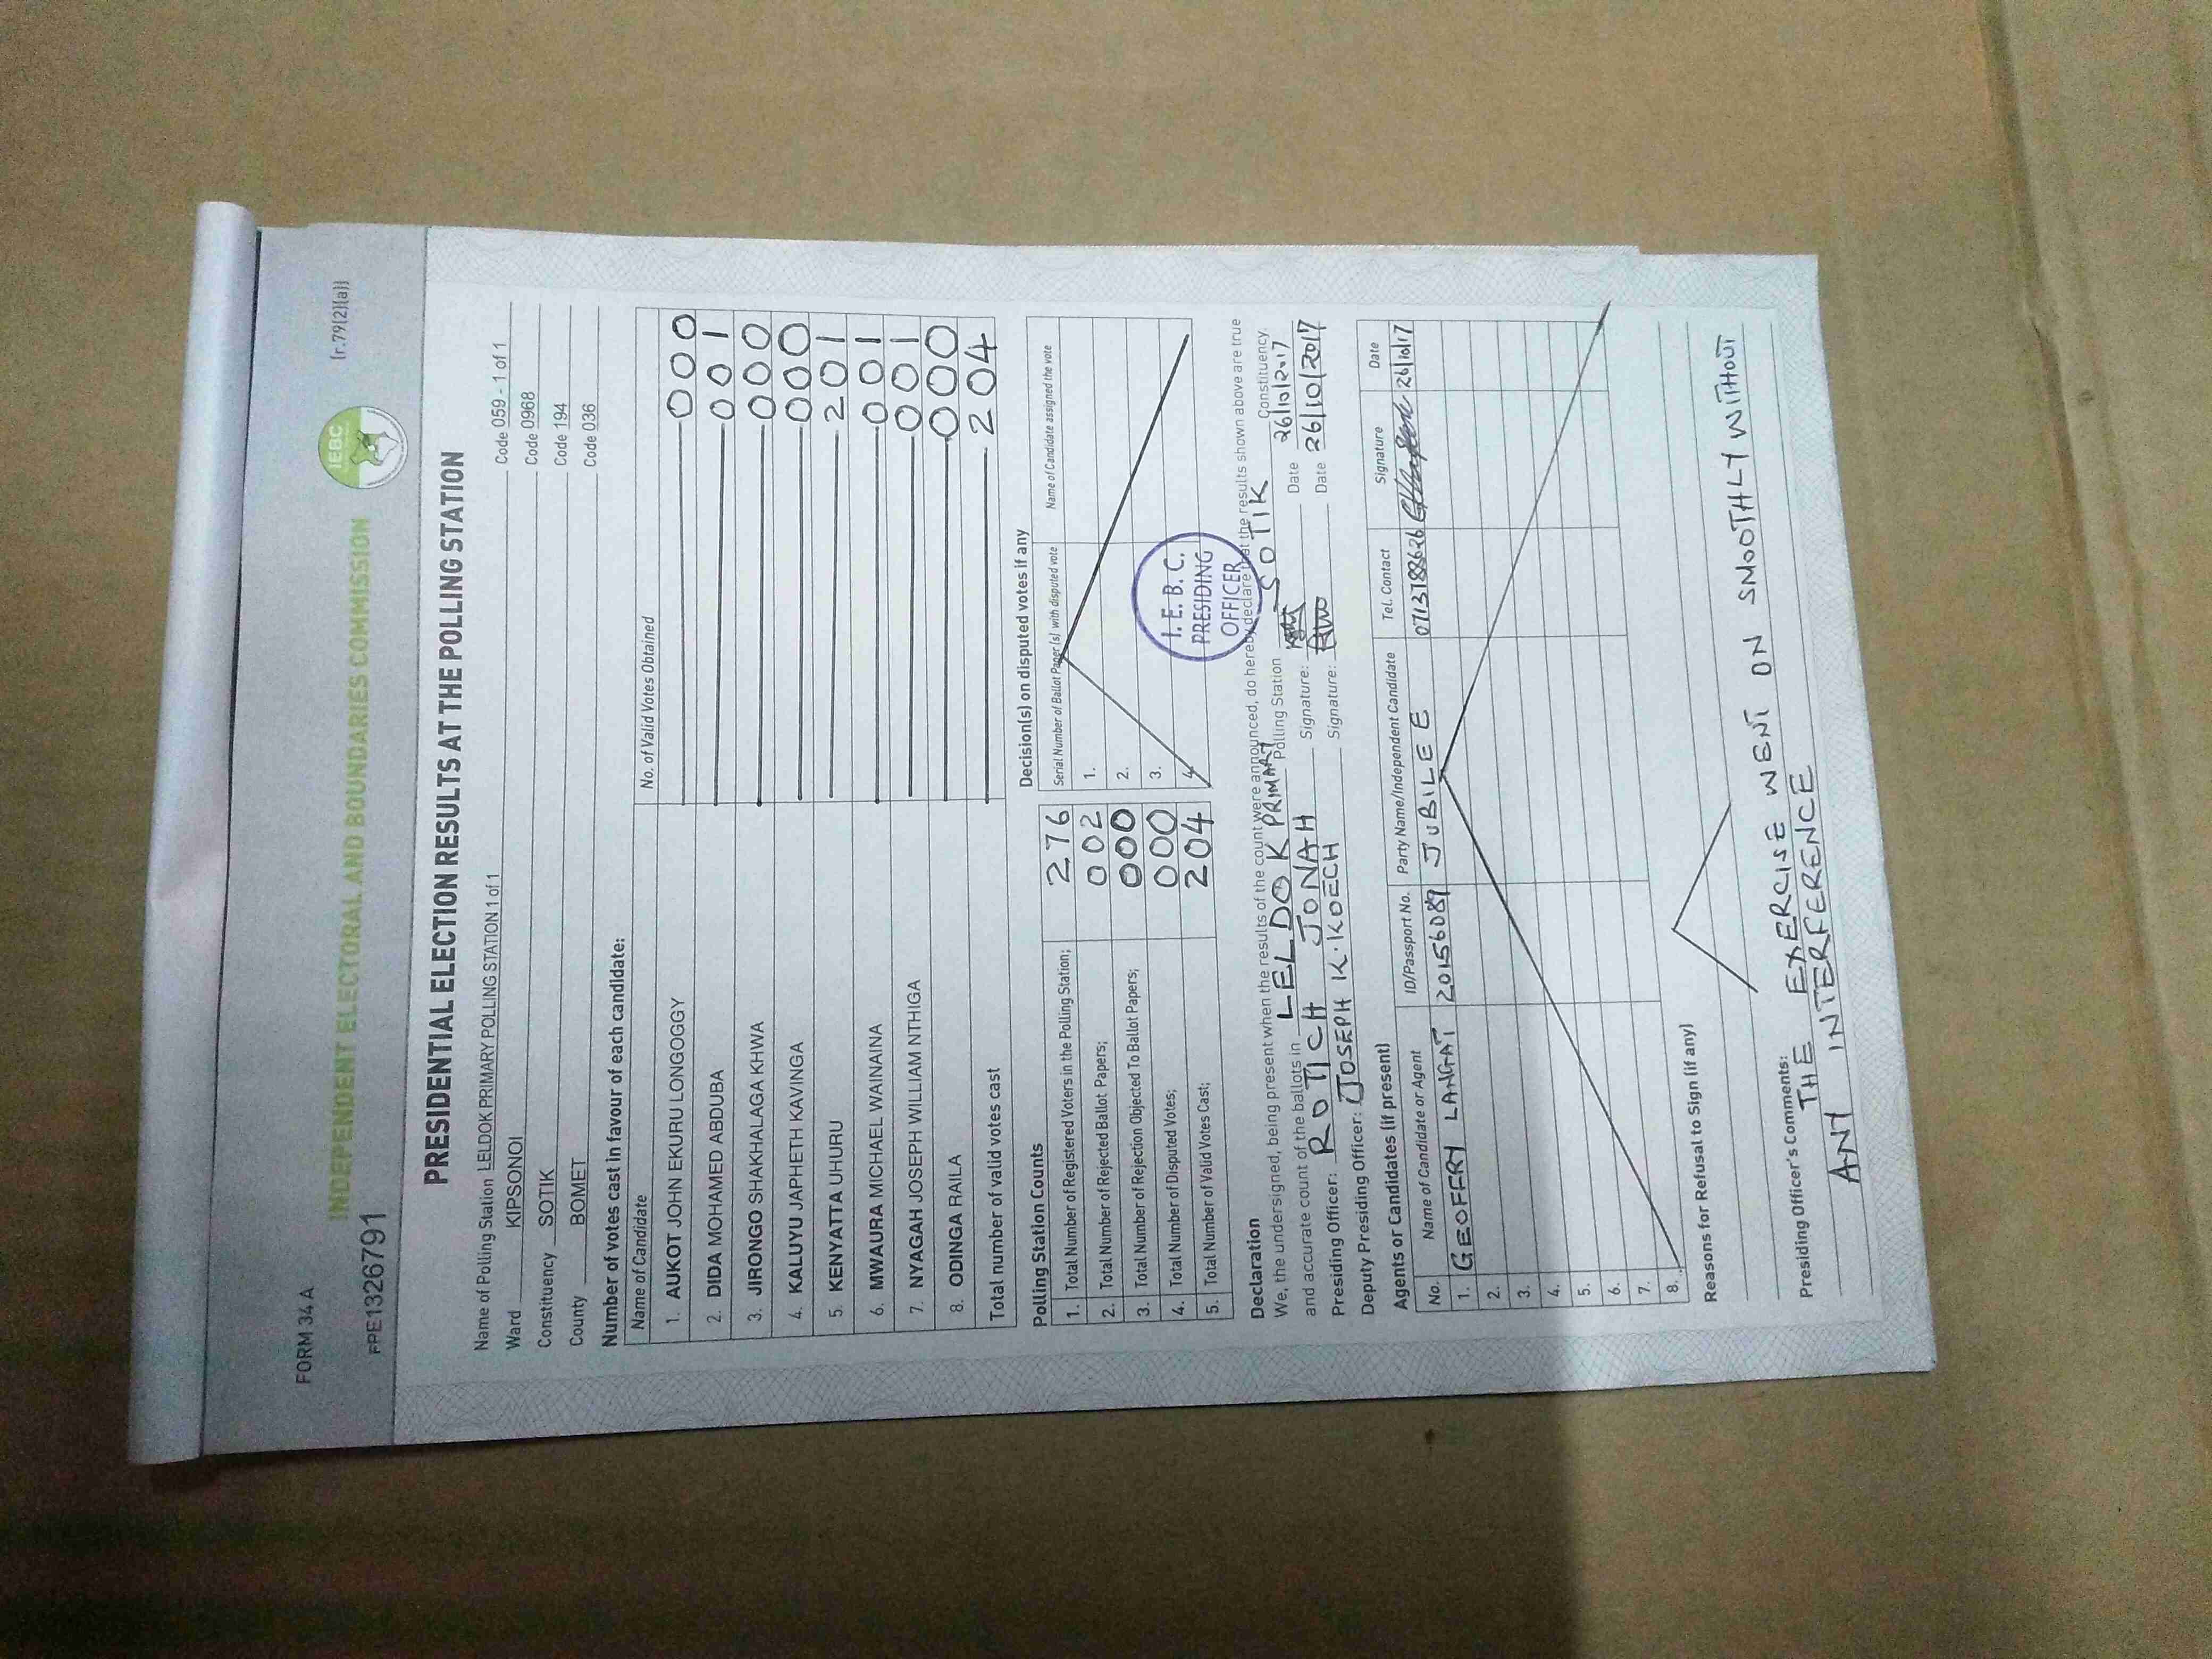 FORM 34 A
(r.79(2)(a))
IEBC
INDEPENDENT ELECTORAL AND BOUNDARIES COMMISSION
FPE1326791
PRESIDENTIAL ELECTION RESULTS AT THE POLLING STATION
Name of Polling Station LELDOK PRIMARY POLLING STATION 1 of 1 Code 059 - 1 of 1
Ward KIPSONOI Code 0968
Constituency SOTIK Code 194
County BOMET Code 036
Number of votes cast in favour of each candidate:
Name of Candidate No. of Valid Votes Obtained
1. AUKOT JOHN EKURU LONGOGGY 000
2. DIDA MOHAMED ABDUBA 001
3. JIRONGO SHAKHALAGA KHWA 000
4. KALUYU JAPHETH KAVINGA 000
5. KENYATTA UHURU 201
6. MWAURA MICHAEL WAINAINA 001
7. NYAGAH JOSEPH WILLIAM NTHIGA 001
8. ODINGA RAILA 000
Total number of valid votes cast 204
Polling Station Counts
1. Total Number of Registered Voters in the Polling Station; 276
2. Total Number of Rejected Ballot Papers; 002
3. Total Number of Rejection Objected To Ballot Papers; 000
4. Total Number of Disputed Votes; 000
5. Total Number of Valid Votes Cast; 204
Decision(s) on disputed votes if any
Serial Number of Ballot Paper(s) with disputed vote Name of Candidate assigned the vote
1.
2.
3.
4.
I. E. B. C.
PRESIDING
OFFICER
Declaration
We, the undersigned, being present when the results of the count were announced, do hereby declare that the results shown above are true
and accurate count of the ballots in LELDOK PRIMARY Polling Station SOTIK Constituency.
Presiding Officer: ROTICH JONAH Signature: Date 26/10/2017
Deputy Presiding Officer: JOSEPH K. KOECH Signature: Date 26/10/2017
Agents or Candidates (if present)
No. Name of Candidate or Agent ID/Passport No. Party Name/Independent Candidate Tel. Contact Signature Date
1. GEOFFRY LANGAT 20156089 JUBILEE 0713188626 26/10/17
2.
3.
4.
5.
6.
7.
8.
Reasons for Refusal to Sign (if any)
Presiding Officer's Comments:
THE EXERCISE WENT ON SMOOTHLY WITHOUT
ANY INTERFERENCE